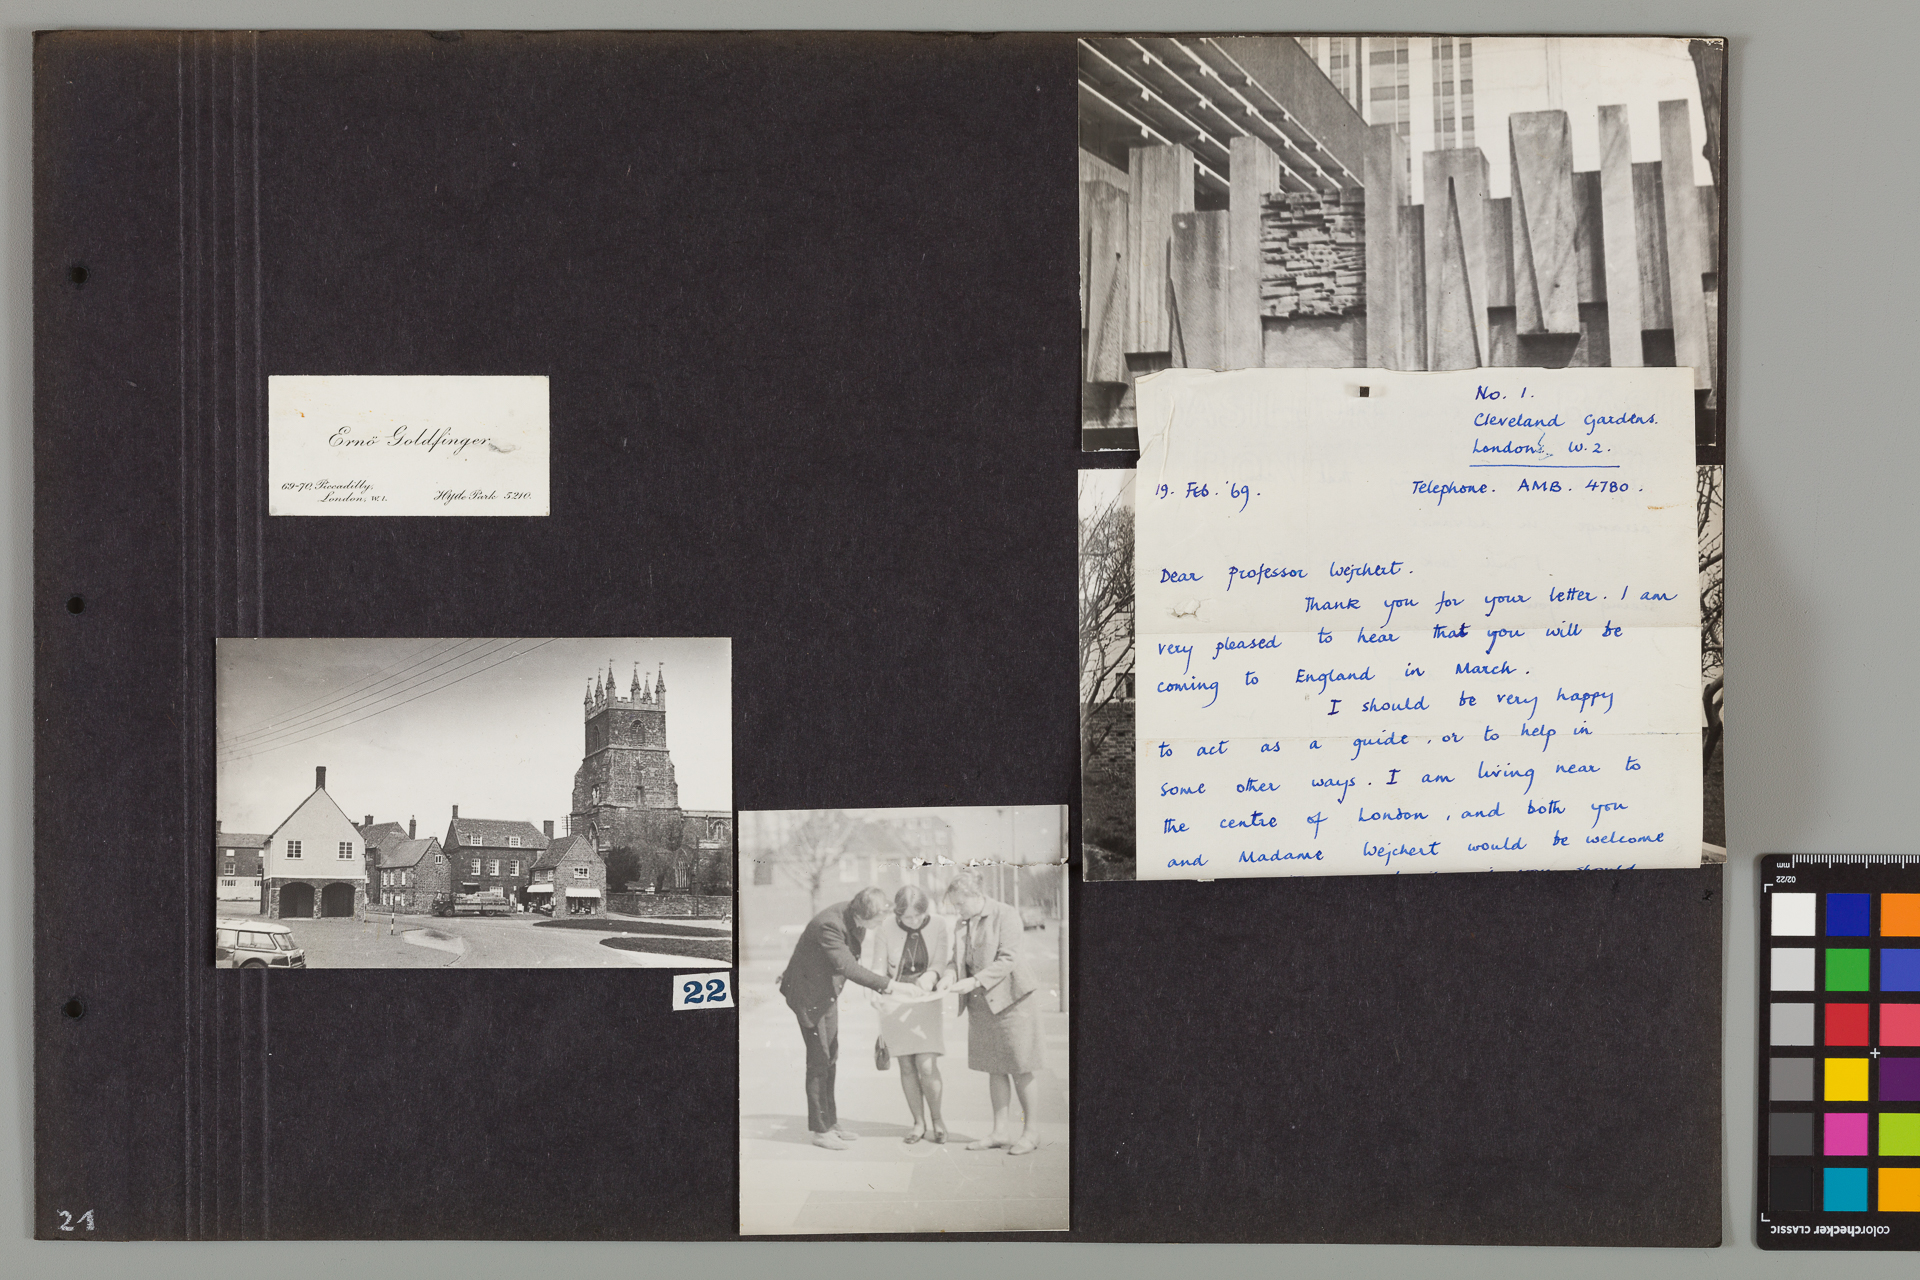 Ernö Goldfinger
69-70, Piccadilly,
London, W.1.
Hyde Park 5210.
22
21
No. 1.
Cleveland Gardens.
London W.2.
19. Feb. '69.
Telephone. AMB. 4780.
Dear Professor Wejchert.
Thank you for your letter. I am
very pleased to hear that you will be
coming to England in March.
I should be very happy
to act as a guide, or to help in
some other ways. I am living near to
the centre of London, and both you
and Madame Wejchert would be welcome
you should
mm
02/22
colorchecker CLASSIC